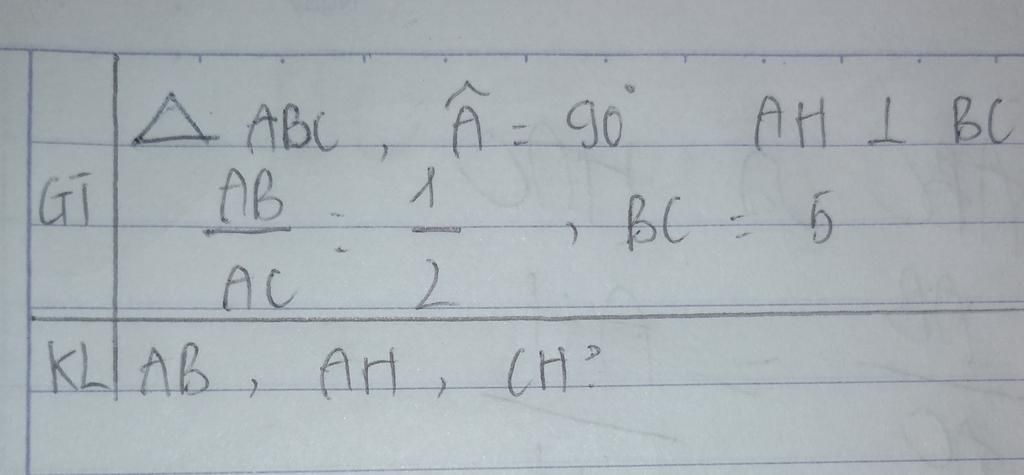 △ ABC, Â = 90° AH ⊥ BC
GT AB/AC = 1/2, BC = 5
KL AB, AH, CH?